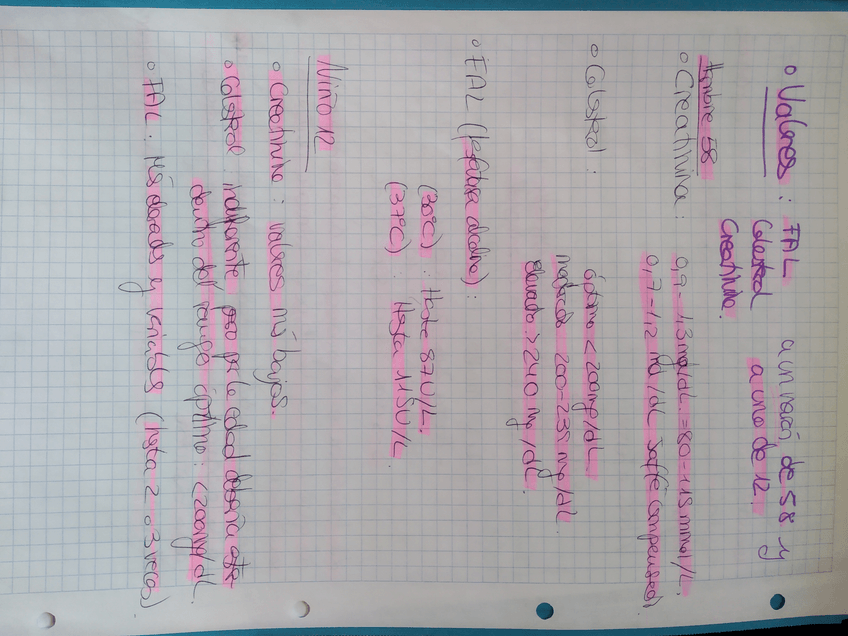 o Valores : FAL a un varón de 58 y
Colesterol a uno de 12.
Creatinina.
Hombre 58
o Creatinina : 0,9 - 1,3 mg/dL. = 80 - 115 mmol/L.
0,7 - 1,2 mg/dL Jaffé Compensed)
o Colesterol : óptimo < 200mg/dL
moderado 200 - 239 mg/dL
elevado > 240 mg/dL.
o FAL (fosfatasa alcalina) :
(30°C) : Hasta 87U/L.
(37°C) : Hasta 115U/L
Niño 12
o Creatinina : valores más bajos.
o Colesterol : indiferente pero por la edad debería estar
dentro del rango óptimo : < 200mg/dL.
o FAL : Más elevada y variable (hasta 2 o 3 veces)